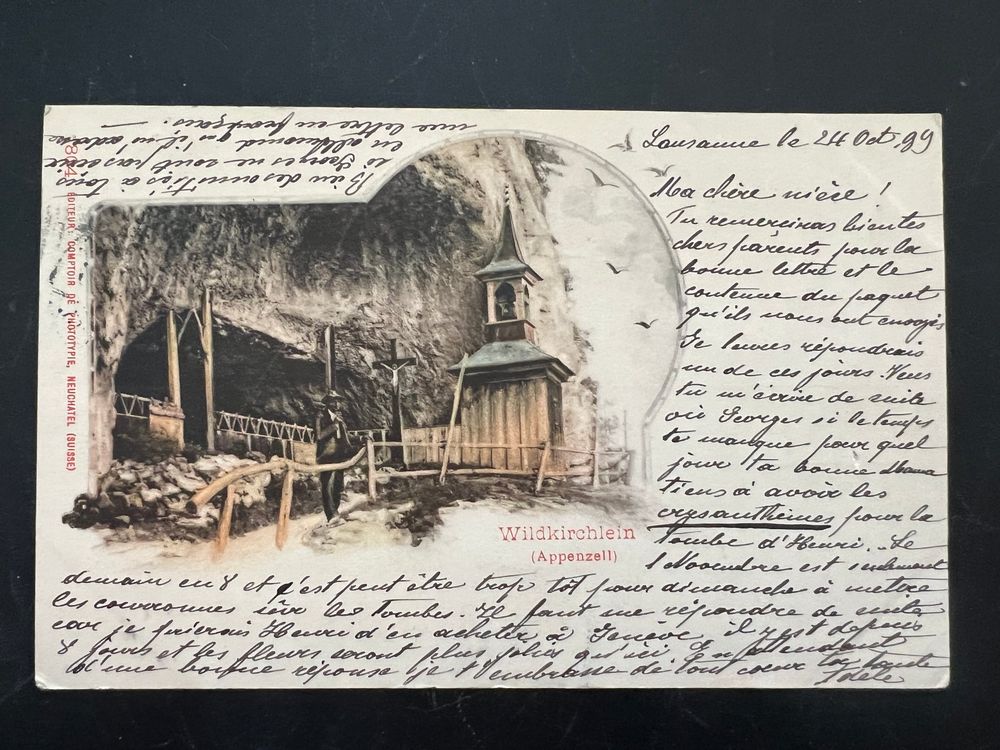 Lausanne le 24 Oct 99
Ma chère nièce !
Tu remercieras bien tes
chers parents pour la
bonne lettre et le
contenue du paquet
qu'ils nous ont envoyés
Je leures répondrais
un de ces jours. Veus
tu m'écrire de suite
où Georges si le temps
te manque pour quel
jour ta bonne Mama
tiens à avoir les
crysanthèmes pour la
Tombe d'Henri. Le
1 Novembre est seulement
demain en 8 et c'est peut être trop tot pour dimanche à mètre
les courronnes sur les Tombes. Il faut me répondre de suite
car je prierais Henri d'en acheter à Genève, il y est depuis
8 jours et les fleurs seront plus jolies qu'ici. En attendant
d'une bonne réponse je t'embrasse de tout coeur ta tante
Idèle
Bien des amitiés à tous
si Georges ne sont pas écrire
en allemand qu'il m'adresse
une lettre en français. —
Wildkirchlein
(Appenzell)
804 EDITEUR: COMPTOIR DE PHOTOTYPIE, NEUCHATEL (SUISSE)